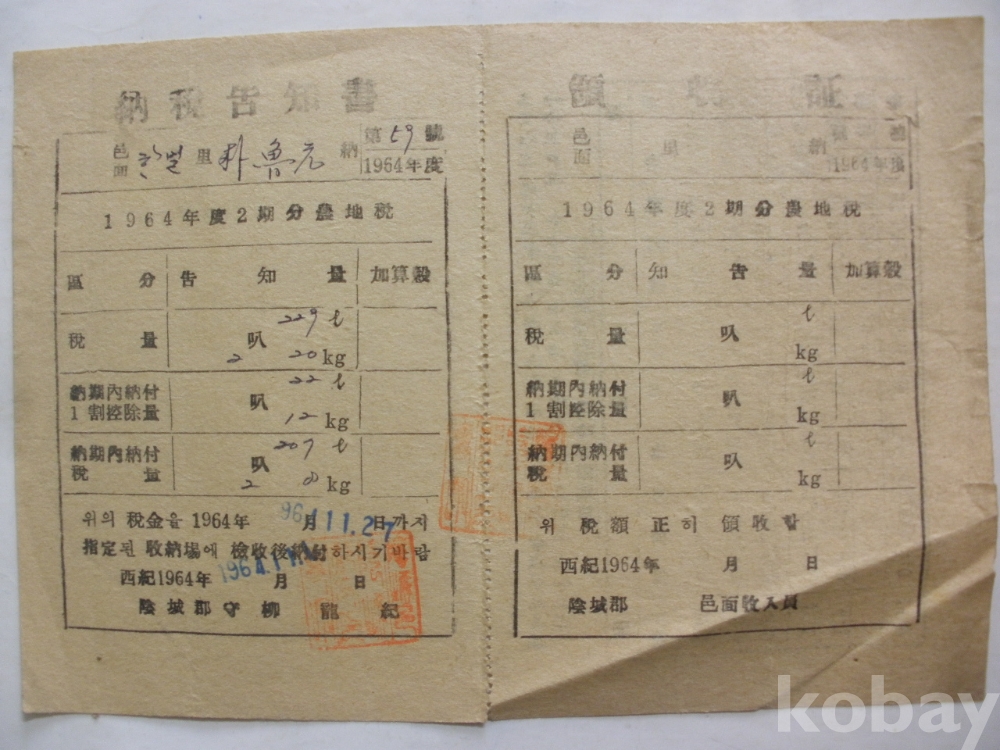 納稅告知書
邑面 한벌 里 朴魯元 納 第59號 1964年度
1964年度2期分農地稅
區分 告知量 加算穀
稅量 229 ℓ
叺
2 20 kg
納期內納付 22 ℓ
1割控除量 叺
12 kg
納期內納付 207 ℓ
稅量 叺
2 8 kg
위의 稅金을 1964年 月 11.27 日까지
指定된 收納場에 檢收後納付하시기바람
西紀1964年 月 日
陰城郡守 柳龍紀
領收証
邑面 里 納 第 號 1964年度
1964年度2期分農地稅
區分 知告量 加算穀
稅量 ℓ
叺
kg
納期內納付 ℓ
1割控除量 叺
kg
納期內納付 ℓ
稅量 叺
kg
위 稅額 正히 領收함
西紀1964年 月 日
陰城郡 邑面收入員
kobay